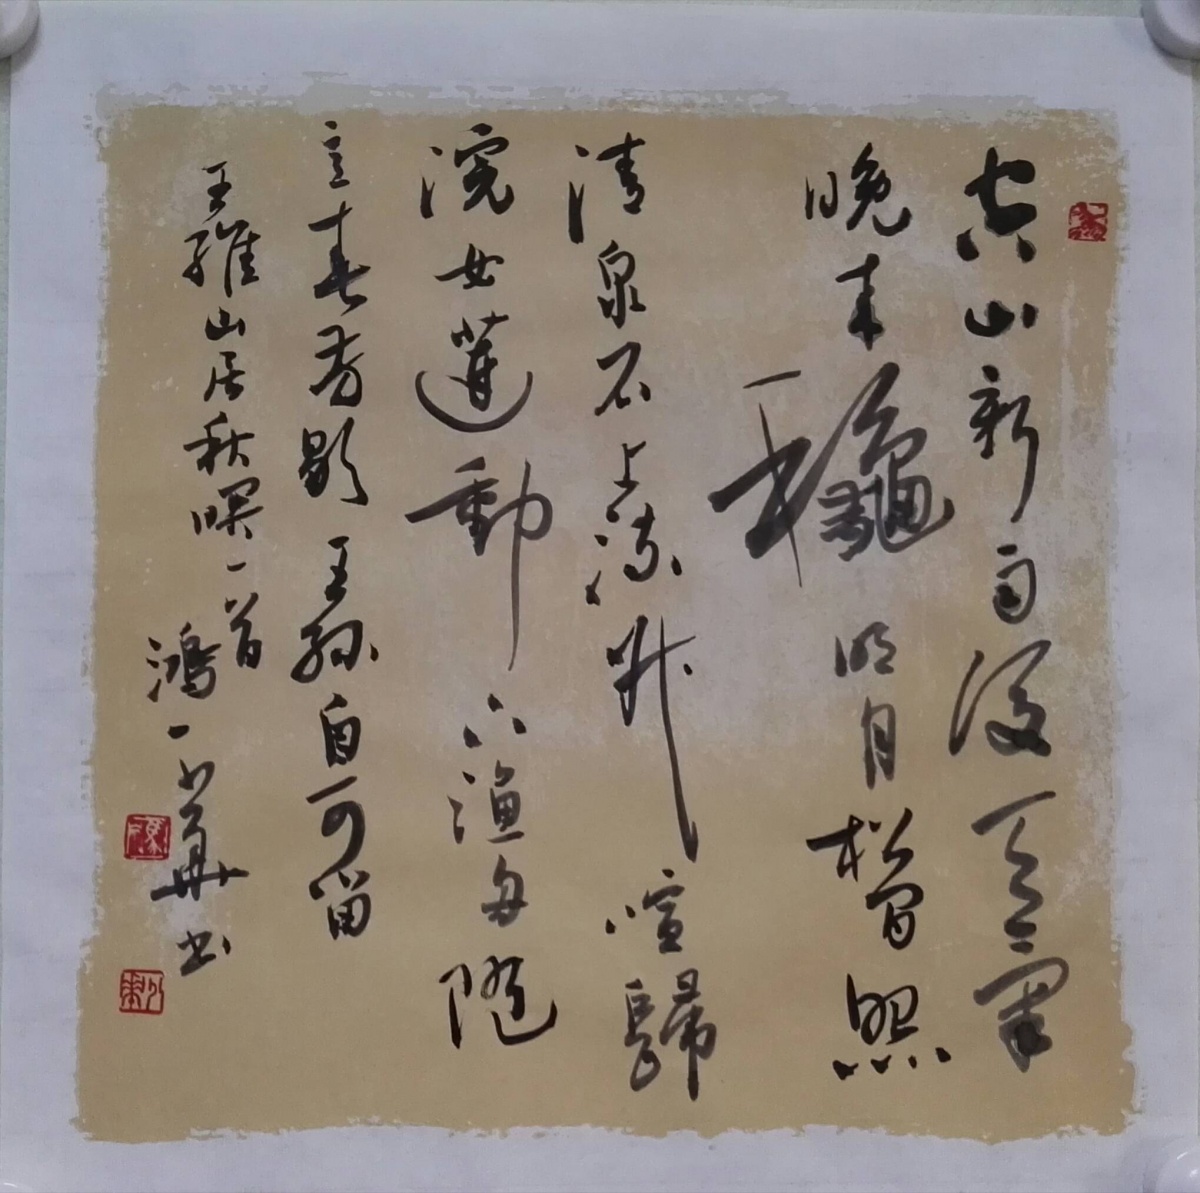 空山新雨後天氣
晚来龝明月松間照
清泉石上流竹喧歸
浣女蓮動下渔舟隨
意春芳歇王孫自可留
王維山居秋暝一首
鴻一 華书